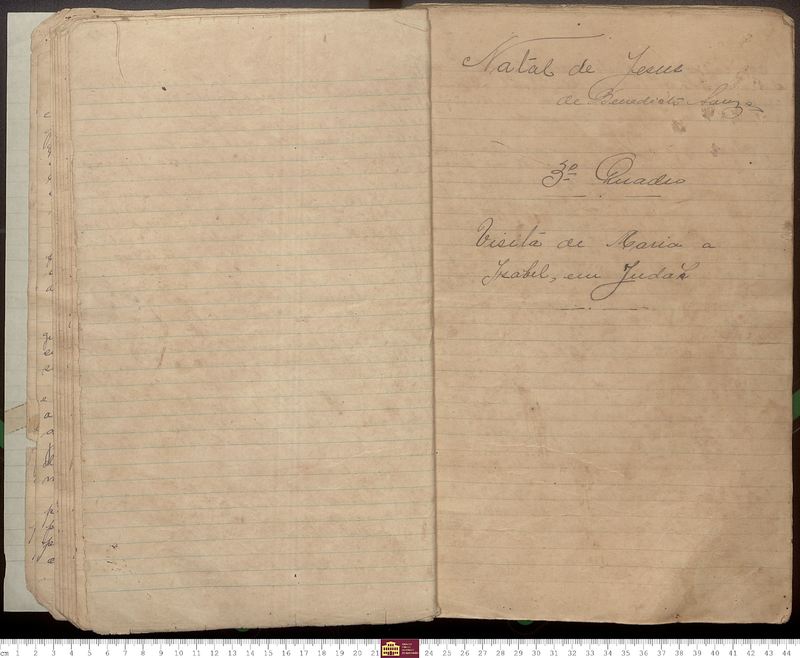 Natal de Jesus
de Benedicto Souza
3º Quadro
Visita de Maria a
Isabel, em Judáh
cm 1 2 3 4 5 6 7 8 9 10 11 12 13 14 15 16 17 18 19 20 21 24 25 26 27 28 29 30 31 32 33 34 35 36 37 38 39 40 41 42 43 44